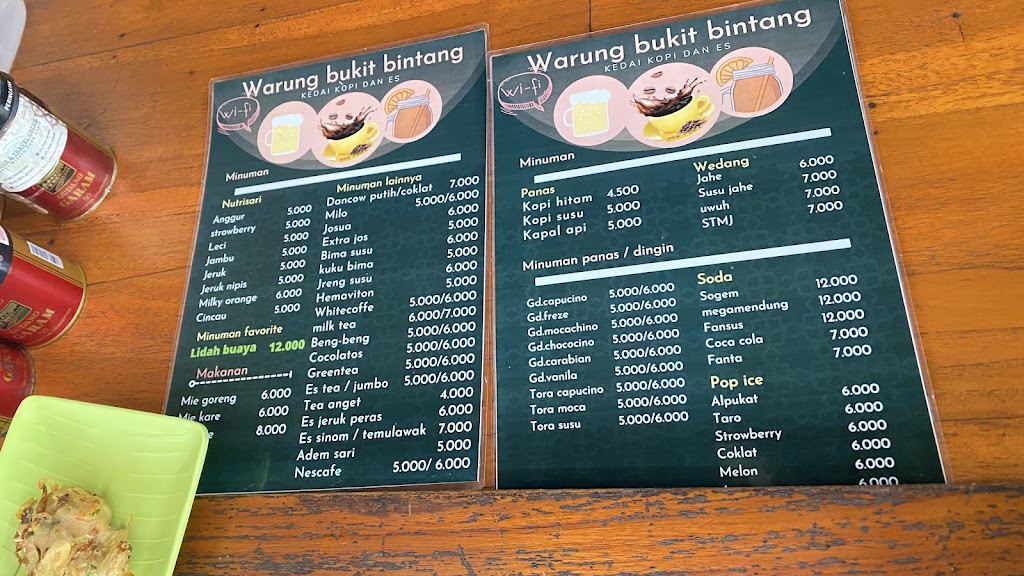 Warung bukit bintang
KEDAI KOPI DAN ES
wi-fi
Minuman
Nutrisari
Anggur 5.000
strowberry 5.000
Leci 5.000
Jambu 5.000
Jeruk 5.000
Jeruk nipis 5.000
Milky orange 6.000
Cincau 5.000
Minuman favorite
Lidah buaya 12.000
Makanan
Mie goreng 6.000
Mie kare 6.000
8.000
Minuman lainnya
Dancow putih/coklat 7.000
Milo 5.000/6.000
Josua 6.000
Extra jos 5.000
Bima susu 6.000
kuku bima 5.000
Jreng susu 6.000
Hemaviton 5.000
Whitecoffe 5.000/6.000
milk tea 6.000/7.000
Beng-beng 5.000/6.000
Cocolatos 5.000/6.000
Greentea 5.000/6.000
Es tea / jumbo 5.000/6.000
Tea anget 4.000
Es jeruk peras 6.000
Es sinom / temulawak 7.000
Adem sari 5.000
Nescafe 5.000/ 6.000
Warung bukit bintang
KEDAI KOPI DAN ES
wi-fi
Minuman
Panas
Kopi hitam 4.500
Kopi susu 5.000
Kapal api 5.000
Wedang
Jahe 6.000
Susu jahe 7.000
uwuh 7.000
STMJ 7.000
Minuman panas / dingin
Gd.capucino 5.000/6.000
Gd.freze 5.000/6.000
Gd.mocachino 5.000/6.000
Gd.chococino 5.000/6.000
Gd.carabian 5.000/6.000
Gd.vanila 5.000/6.000
Tora capucino 5.000/6.000
Tora moca 5.000/6.000
Tora susu 5.000/6.000
Soda
Sogem 12.000
megamendung 12.000
Fansus 12.000
Coca cola 7.000
Fanta 7.000
Pop ice
Alpukat 6.000
Taro 6.000
Strowberry 6.000
Coklat 6.000
Melon 6.000
6.000